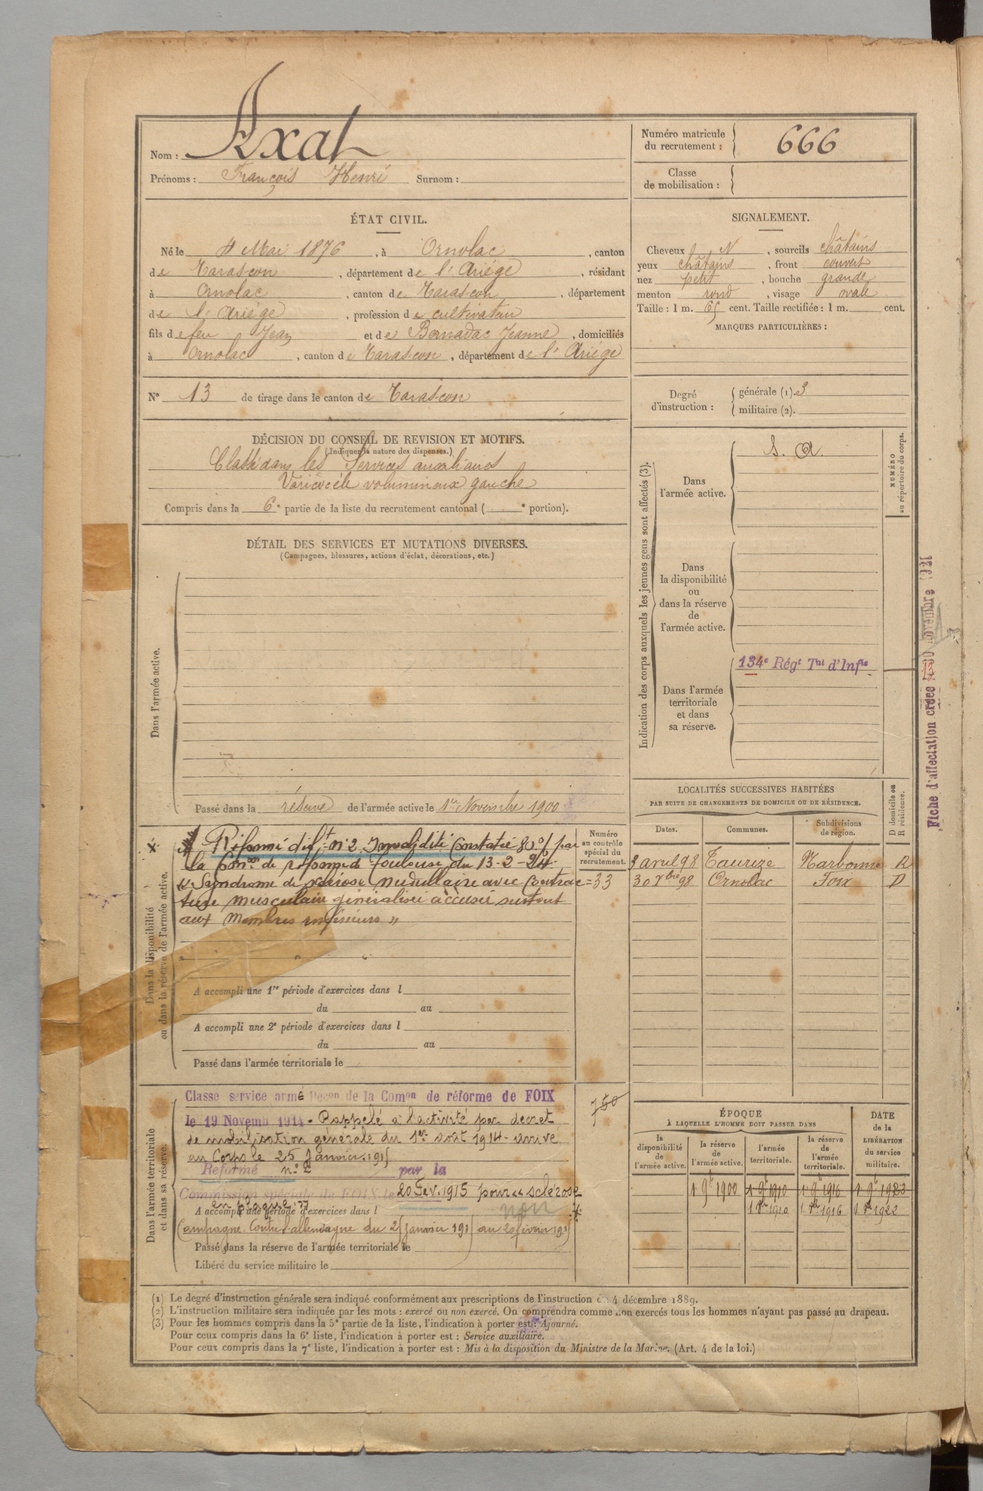 Nom : Axat
Prénoms : François Henri Surnom :
Numéro matricule du recrutement : 666
Classe de mobilisation :
ÉTAT CIVIL.
Né le 4 Mai 1876, à Ornolac, canton
de Tarascon, département de l'Ariége, résidant
à Ornolac, canton de Tarascon, département
de l'Ariége, profession de cultivateur
fils de feu Jean et de Bonnadac Jeanne, domiciliés
à Ornolac, canton de Tarascon, département de l'Ariége
N° 13 de tirage dans le canton de Tarascon
SIGNALEMENT.
Cheveux N, sourcils châtains
yeux châtains, front couvert
nez petit, bouche grande
menton rond, visage ovale
Taille : 1 m. 65 cent. Taille rectifiée : 1 m. cent.
MARQUES PARTICULIÈRES :
Degré d'instruction : générale (1). 3
militaire (2).
DÉCISION DU CONSEIL DE REVISION ET MOTIFS.
(Indiquer la nature des dispenses.)
Classé dans les Services auxiliaires
Varicocèle volumineux gauche
Compris dans la 6e partie de la liste du recrutement cantonal ( e portion).
DÉTAIL DES SERVICES ET MUTATIONS DIVERSES.
(Campagnes, blessures, actions d'éclat, décorations, etc.)
Dans l'armée active.
Passé dans la réserve de l'armée active le 1er Novembre 1900
Indication des corps auxquels les jeunes gens sont affectés (3).
NUMÉRO au répertoire du corps.
Dans l'armée active.
S. A.
Dans la disponibilité ou dans la réserve de l'armée active.
Dans l'armée territoriale et dans sa réserve.
134e Régt Tal d'Infie
Fiche d'affectation créée
LOCALITÉS SUCCESSIVES HABITÉES
PAR SUITE DE CHANGEMENTS DE DOMICILE OU DE RÉSIDENCE.
Dates. Communes. Subdivisions de région. D domicile ou R résidence.
3 avril 98 Taurize Narbonne R
30 7bre 98 Ornolac Foix D
Dans la disponibilité ou dans la réserve de l'armée active.
Numéro au contrôle spécial du recrutement.
33
Réformé déft n° 2 Invalidité constatée 80% par
la Comon de réforme de Toulouse du 13-2-24
"Syndrome de sclérose médullaire avec contrac-
ture musculaire généralisée accusée surtout
aux membres inférieurs"
A accompli une 1re période d'exercices dans l
du au
A accompli une 2e période d'exercices dans l
du au
Passé dans l'armée territoriale le
Dans l'armée territoriale et dans sa réserve.
Classé service armé de la Comon de réforme de FOIX
le 19 Novemb 1914. Rappelé à l'activité par décret
de mobilisation générale du 1er août 1914. Arrivé
au Corps le 25 janvier 1915
Réformé n° 2 par la
Commission spéciale de FOIX le 20 Fév. 1915 pour "sclérose
en plaques"
A accompli une période d'exercices dans l non
(Campagne Contre l'allemagne du 25 janvier 1915 au 20 février 1915)
Passé dans la réserve de l'armée territoriale le
Libéré du service militaire le
780
ÉPOQUE
À LAQUELLE L'HOMME DOIT PASSER DANS
DATE de la LIBÉRATION du service militaire.
la disponibilité de l'armée active. la réserve de l'armée active. l'armée territoriale. la réserve de l'armée territoriale.
1 9bre 1900 1 9bre 1910 1 9bre 1916 1 9bre 1923
1 8bre 1910 1 8bre 1916 1 8bre 1922
(1) Le degré d'instruction générale sera indiqué conformément aux prescriptions de l'instruction du 4 décembre 1889.
(2) L'instruction militaire sera indiquée par les mots : exercé ou non exercé. On comprendra comme non exercés tous les hommes n'ayant pas passé au drapeau.
(3) Pour les hommes compris dans la 5e partie de la liste, l'indication à porter est : Ajourné.
Pour ceux compris dans la 6e liste, l'indication à porter est : Service auxiliaire.
Pour ceux compris dans la 7e liste, l'indication à porter est : Mis à la disposition du Ministre de la Marine. (Art. 4 de la loi.)